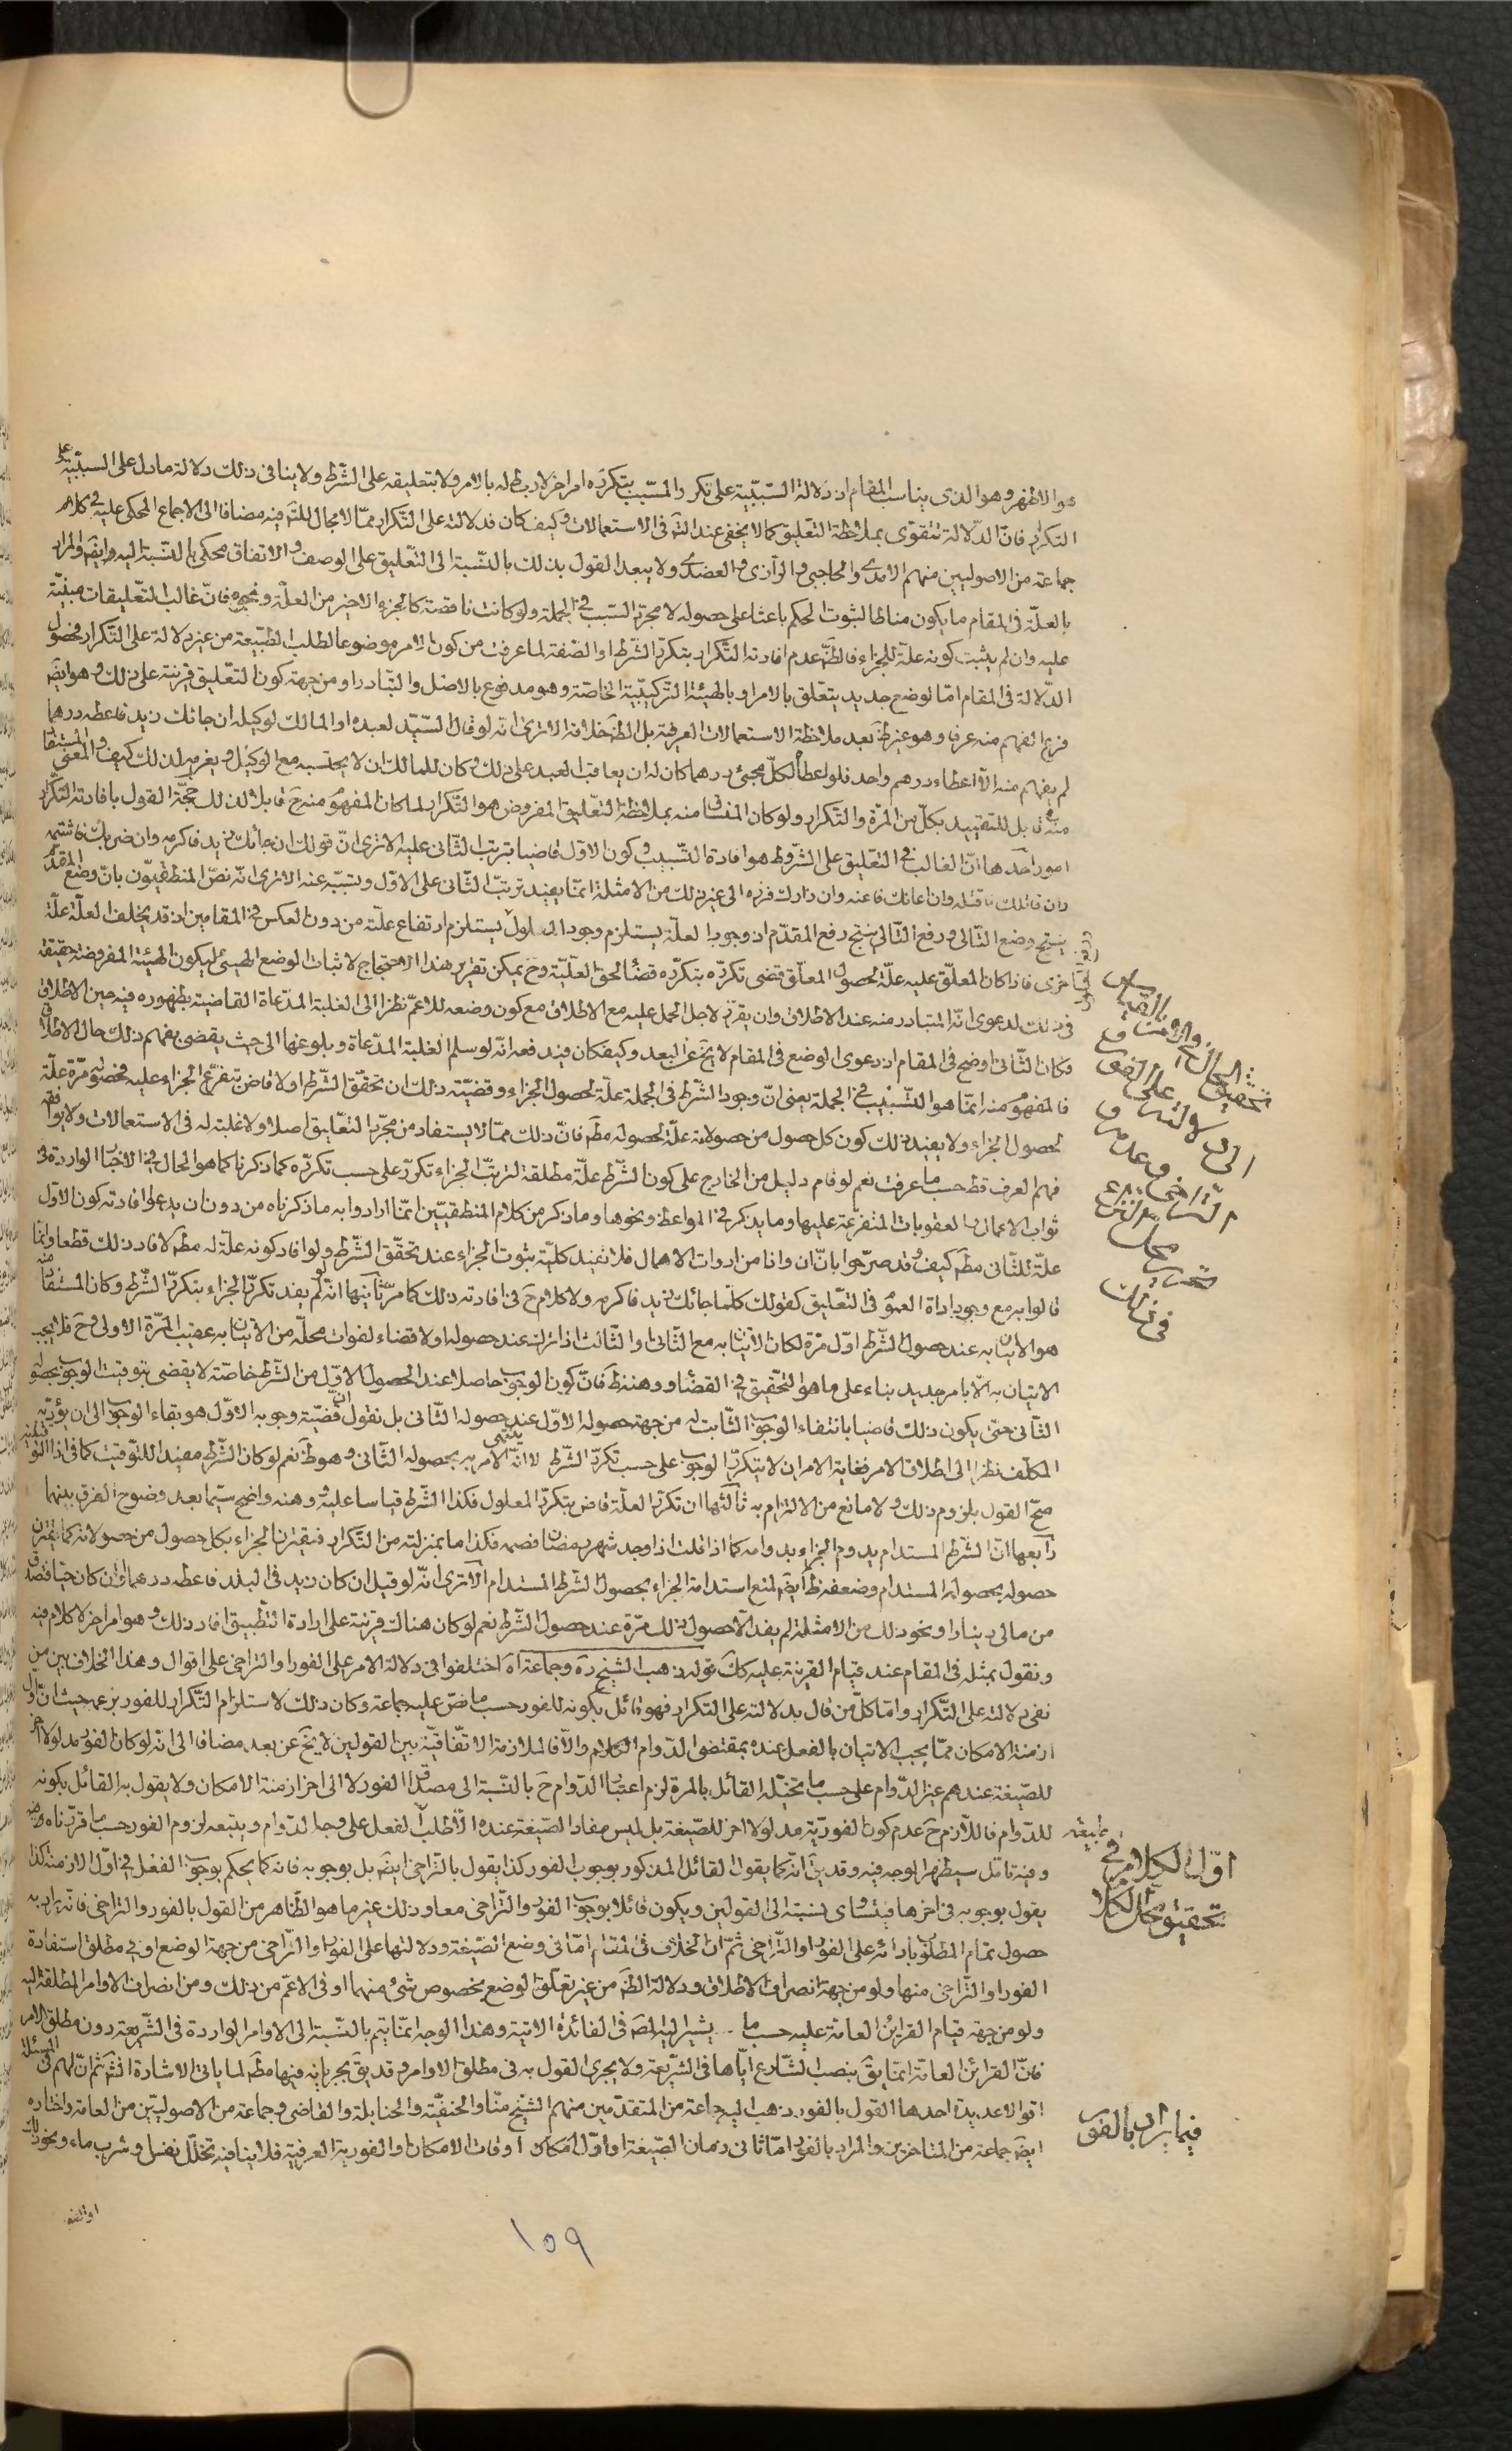 هو الاظهر وهو الذى يناسب المقام اذ دلالة السّببيّة على تكرر المسّبب بتكرّره امر اخر لا ربط له بالامر ولا بتعليقه على الشّرط ولا ينافى ذلك دلالة ما دل على السببيّة على
التكرار فانّ الدّلالة تتقوّى بملاحظة التعليق كما لا يخفى عند التّم فى الاستعمالات وكيف كان فدلالته على التّكرار ممّا لا مجال للتّم فيه مضافا الى الاجماع المحكى عليه فى كلام
جماعة من الاصوليين منهم الامدى والحاجبى والرازى والعضدى ولا يبعد القول بذلك بالنّسبة الى التّعليق على الوصف والاتفاق محكى بالنّسبة اليه وايضَ والمراد
بالعلّة فى المقام ما يكون مناطا لثبوت الحكم باعثا على حصوله لا مجرّد السّبب فى الجملة ولو كانت ناقصة كالجزء الاخير من العلّة ونحوه فانّ غالب التّعليقات مبنيّة
عليه وان لم يثبت كونه علّة للجزاء فالظّ عدم افادته التّكرار بتكرّر الشّرط او الصّفة لما عرفت من كون الامر موضوعا لطلب الطّبيعة من غير دلالة على التّكرار فحصول
الدّلالة فى المقام امّا لوضع جديد يتعلّق بالامر او بالهيئة التّركيبيّة الخاصّة وهو مدفوع بالاصل والتّبادر او من جهة كون التعليق قرينة على ذلك وهو ايضَ
فرع الفهم منه عرفا وهو غير ظَ بعد ملاحظة الاستعمالات العرفية بل الظَ خلافه الا ترى انه لو قال السّيّد لعبده او المالك لوكيله ان جائك زيد فاعطه درهما
لم يفهم منه الّا اعطاء درهم واحد فلو اعطاه لكلّ مجئ درهما كان له ان يعاقب العبد على ذلك وكان للمالك ان لا يحتسبه مع الوكيل ويغرمه لذلك كيف والمعنى المستفاد
منه قابل للتقييد بكلّ من المرّة والتّكرار ولو كان المنساق منه بملاحظة التّعليق المفروض هو التّكرار لما كان المفهوم منه حَ قابلا لذلك حجّة القول بافادته التّكرار
امور احدها انّ الغالب فى التعليق على الشّروط هو افادة التّسبيب وكون الاوّل قاضيا بترتب الثّانى عليه الا ترى انّ قولك ان جائك زيد فاكرمه وان ضربك فاشتمه
وان قاتلك فاقتله وان اعانك فاعنه وان زارك فزره الى غير ذلك من الامثلة انمّا يفيد ترتبّ الثّانى على الاوّل وتسبّبه عنه الا ترى انّه نصّ المنطقيّون بانّ وضع المقدّم
ينتج وضع التّالى ورفع التّالى ينتج رفع المقدّم اذ وجود العلّة يستلزم وجود المعلول يستلزم ارتفاع علّته من دون العكس فى المقامين اذ قد يخلف العلّة علّة
اخرى فاذا كان المعلّق عليه علّة لحصول المعلّق قضى تكرّره بتكرّره قضاءً لحق العلّيّة وحَ يمكن تقرير هذا الاحتجاج لاثبات الوضع الهيئى ليكون الهيئة المفروضة حقيقة
فى ذلك لدعوى انّه المتبادر منه عند الاطلاق وان يقرّر لاجل الحمل عليه مع الاطلاق مع كون وضعه للاعمّ نظرا الى الغلبة المدّعاة القاضية بظهوره فيه حين الاطلاق
وكان الثّانى اوضح فى المقام اذ دعوى الوضع فى المقام لا يخ عن البعد وكيف كان فيدفعه انّه لو سلم الغلبة المدّعاة وبلوغها الى حيث يقضى بفهم ذلك حال الاطلاق
فالمفهوم منه انمّا هو التّسبيب فى الجملة يعنى انّ وجود الشّرط فى الجملة علّة لحصول الجزاء وقضيّة ذلك ان تحقّق الشّرط اولا قاض بتفرّع الجزاء عليه فحصوله مرّة علّة
لحصول الجزاء ولا يفيد ذلك كون كل حصول من حصولاته علّة لحصوله مطَ فانّ ذلك ممّا لا يستفاد من مجرّد التعّليق اصلا ولا غلبة له فى الاستعمالات ولا يوافقه
فهم العرف قط حسب ما عرفت نعم لو قام دليل من الخارج على كون الشّرط علّة مطلقة لترتبّ الجزاء تكرّر على حسب تكرّره كما ذكرنا كما هو الحال فى الاخبار الواردة فى
ثواب الاعمال والعقوبات المتفرّعة عليها وما يذكر فى المواعظ ونحوها وما ذكر من كلام المنطقيّين انمّا ارادوا به ما ذكرناه من دون ان يدعوا افادته كون الاوّل
علّة للثّانى مطَ كيف وقد صرّحوا بانّ ان واذا من ادوات الاهمال فلا تفيد كليّة بثبوت الجزاء عند تحقّق الشّرط ولو افاد كونه علّة له مطَ لافاد ذلك قطعا وانمّا
قالوا به مع وجود اداة العموم فى التّعليق كقولك كلّما جائك زيد فاكرمه ولا كلام حَ فى افادته ذلك كما مرّ ثانيها انّه لو لم يفد تكرّر الجزاء بتكرّر الشّرط وكان المستفاد منه
هو الاتيان به عند حصول الشّرط اوّل مرّة لكان الاتيان به مع الثّانى والثّالث اذا ترك عند حصوله اولا قضاء لفوات محلّه من الاتيان به عقيب المرّة الاولى وحَ فلا يجب
الاتيان به الّا بامر جديد بناء على ما هو التّحقيق فى القضاء ووهنه ظَ فانّ كون الوجوب حاصلا عند الحصول الاوّل من الشّرط خاصّة لا يقضى بتوقيت الوجوب بحصوله
الثانى حتىّ يكون ذلك قاضيا بانتفاء الوجوب الثّابت له من جهة حصوله الاوّل عند حصوله الثّانى بل نقول انّ قضيّة وجوبه الاوّل هو بقاء الوجوب الى ان يؤدّيه
المكلّف نظرا الى اطلاق الامر فغاية الامر ان لا يتكرّر الوجوب على حسب تكرّر الشّرط لا انّه ينتهى الامر به بحصوله الثّانى وهو ظَ نعم لو كان الشّرط مفيدا للتّوقيت كما فى اذا
صحّ القول بلزوم ذلك ولا مانع من الالتزام به ثالثها ان تكرّر العلّة قاض بتكرّر المعلول فكذا الشّرط قياسا عليه ووهنه واضح سيّما بعد وضوح الفرق بينهما
رابعها انّ الشّرط المستدام يدوم الجزاء بدوامه كما اذا قلت اذا وجد شهر رمضان فصمه فكذا ما بمنزلته من التّكرار فيقترن الجزاء بكل حصول من حصولاته كما يقترن
حصوله بحصوله المستدام وضعفه ظَ ايضَ لمنع استدامة الجزاء بحصول الشّرط المستدام الا ترى انّه لو قيل ان كان زيد فى البلد فاعطه درهما وان كان حيا فتصدّق
من مالى دينارا ونحو ذلك من الامثلة لم يفد الّا حصول ذلك مرّة عند حصول الشّرط نعم لو كان هناك قرينة على ارادة التّطبيق افاد ذلك وهو امر اخر لا كلام فيه
ونقول بمثله فى المقام عند قيام القرينة عليه كك قوله ذهب الشّيخ ره وجماعة اه اختلفوا فى دلالة الامر على الفور او التراخى على اقوال وهذا الخلاف بين من
نفى دلالته على التّكرار وامّا كلّ من قال بدلالته على التكرار فهو قائل بكونه للفور حسب ما نصّ عليه جماعة وكان ذلك لاستلزام التّكرار للفور بزعمه حيث انّ اول
ازمنة الامكان ممّا يجب الاتيان بالفعل عنده بمقتضى الدّوام والّا فالملازمة الاتّفاقيّة بين القولين لا يخَ عن بعد مضافا الى انه لو كان الفور مدلولا اخر
للصّيغة عندهم غير الدّوام على حسب ما تخيّله القائل بالمرة لزم اعتبار الدّوام حَ بالنّسبة الى مصداق الفور لا الى اخر ازمنة الامكان ولا يقول به القائل بكونه
للدّوام فاللّازم حَ عدم كون الفوريّة مدلولا اخر للصّيغة بل ليس مفاد الصّيغة عنده الّا طلب الفعل على وجه الدّوام ويتبعه لزوم الفور حسب ما قرّرناه
وفيه تامّل سيظهر الوجه فيه وقد يقَ انّه كما يقول القائل المذكور بوجوب الفور كذا يقول بالتّراخى ايضَ بل بوجوبه فانه كما يحكم بوجوب الفعل فى اوّل الازمنة كذا
يقول بوجوبه فى اخرها فيتساوى نسبته الى القولين ويكون قائلا بوجوب الفور والتّراخى معا وذلك غير ما هو الظّاهر من القول بالفور والتراخى فانّه يراد به
حصول تمام المطلوب بادائه على الفور او التّراخى ثمّ انّ الخلاف فى المقام امّا فى وضع الصّيغة ودلالتها على الفور او التّراخى من جهة الوضع او فى مطلق استفادة
الفور او التّراخى منها ولو من جهة انصراف الاطلاق ودلالة الظَ من غير تعلّق الوضع بخصوص شئ منهما او فى الاعمّ من ذلك ومن انصراف الاوامر المطلقة اليه
ولو من جهة قيام القراين العامّة عليه حسب ما يشير اليه المصَ فى الفائدة الاتية وهذا الوجه انمّا يتم بالنّسبة الى الاوامر الواردة فى الشّريعة دون مطلق الامر
فانّ القرائن العامّة انمّا يقَ بنصب الشّارع ايّاها فى الشّريعة ولا يجرى القول به فى مطلق الاوامر وقد يقَ بجريانه فيها مطَ لما ياتى الاشارة انشَ ثمّ انّ لهم فى المسئلة
اقوالا عديدة احدها القول بالفور ذهب اليه جماعة من المتقدّمين منهم الشّيخ منّا والحنفيّة والحنابلة والقاضى وجماعة من الاصوليّين من العامّة واختاره
ايضَ جماعة من المتاخرين والمراد بالفور امّا ثانى زمان الصّيغة او اوّل اوقات الامكان او الفورية العرفية فلا ينافيه تخلّل نفس وشرب ماء ونحو ذلك
او الفو
على الفور
التراخى وعدمه
فى ذلك
اوّل الكلام فى
تحقيق محلّ الكلام
فيما يراد بالفور
١٥٩